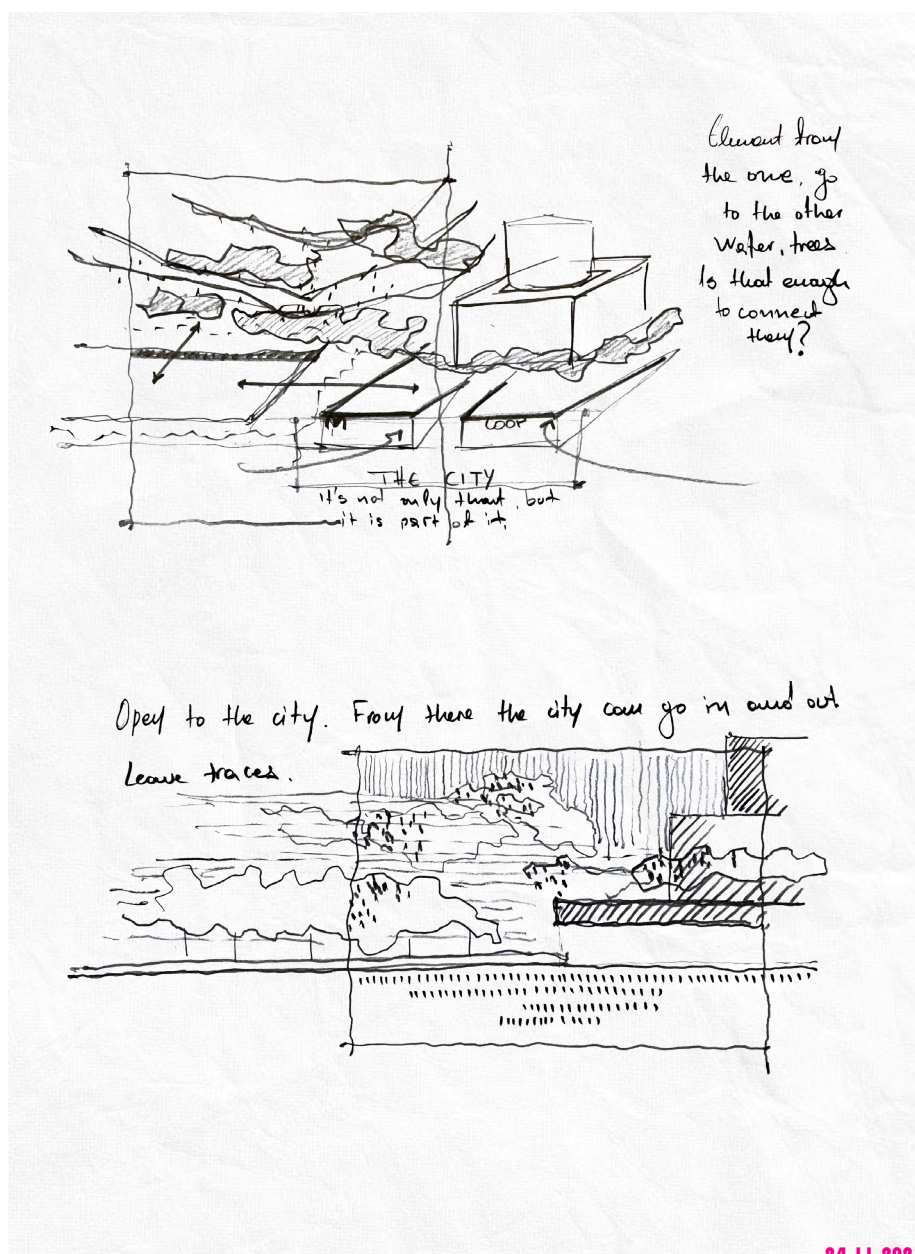 Element from
the one, go
to the other
Water, trees
Is that enough
to connect
them?
COOP
THE CITY
It's not only that, but
it is part of it.
Open to the city. From there the city can go in and out.
Leave traces.